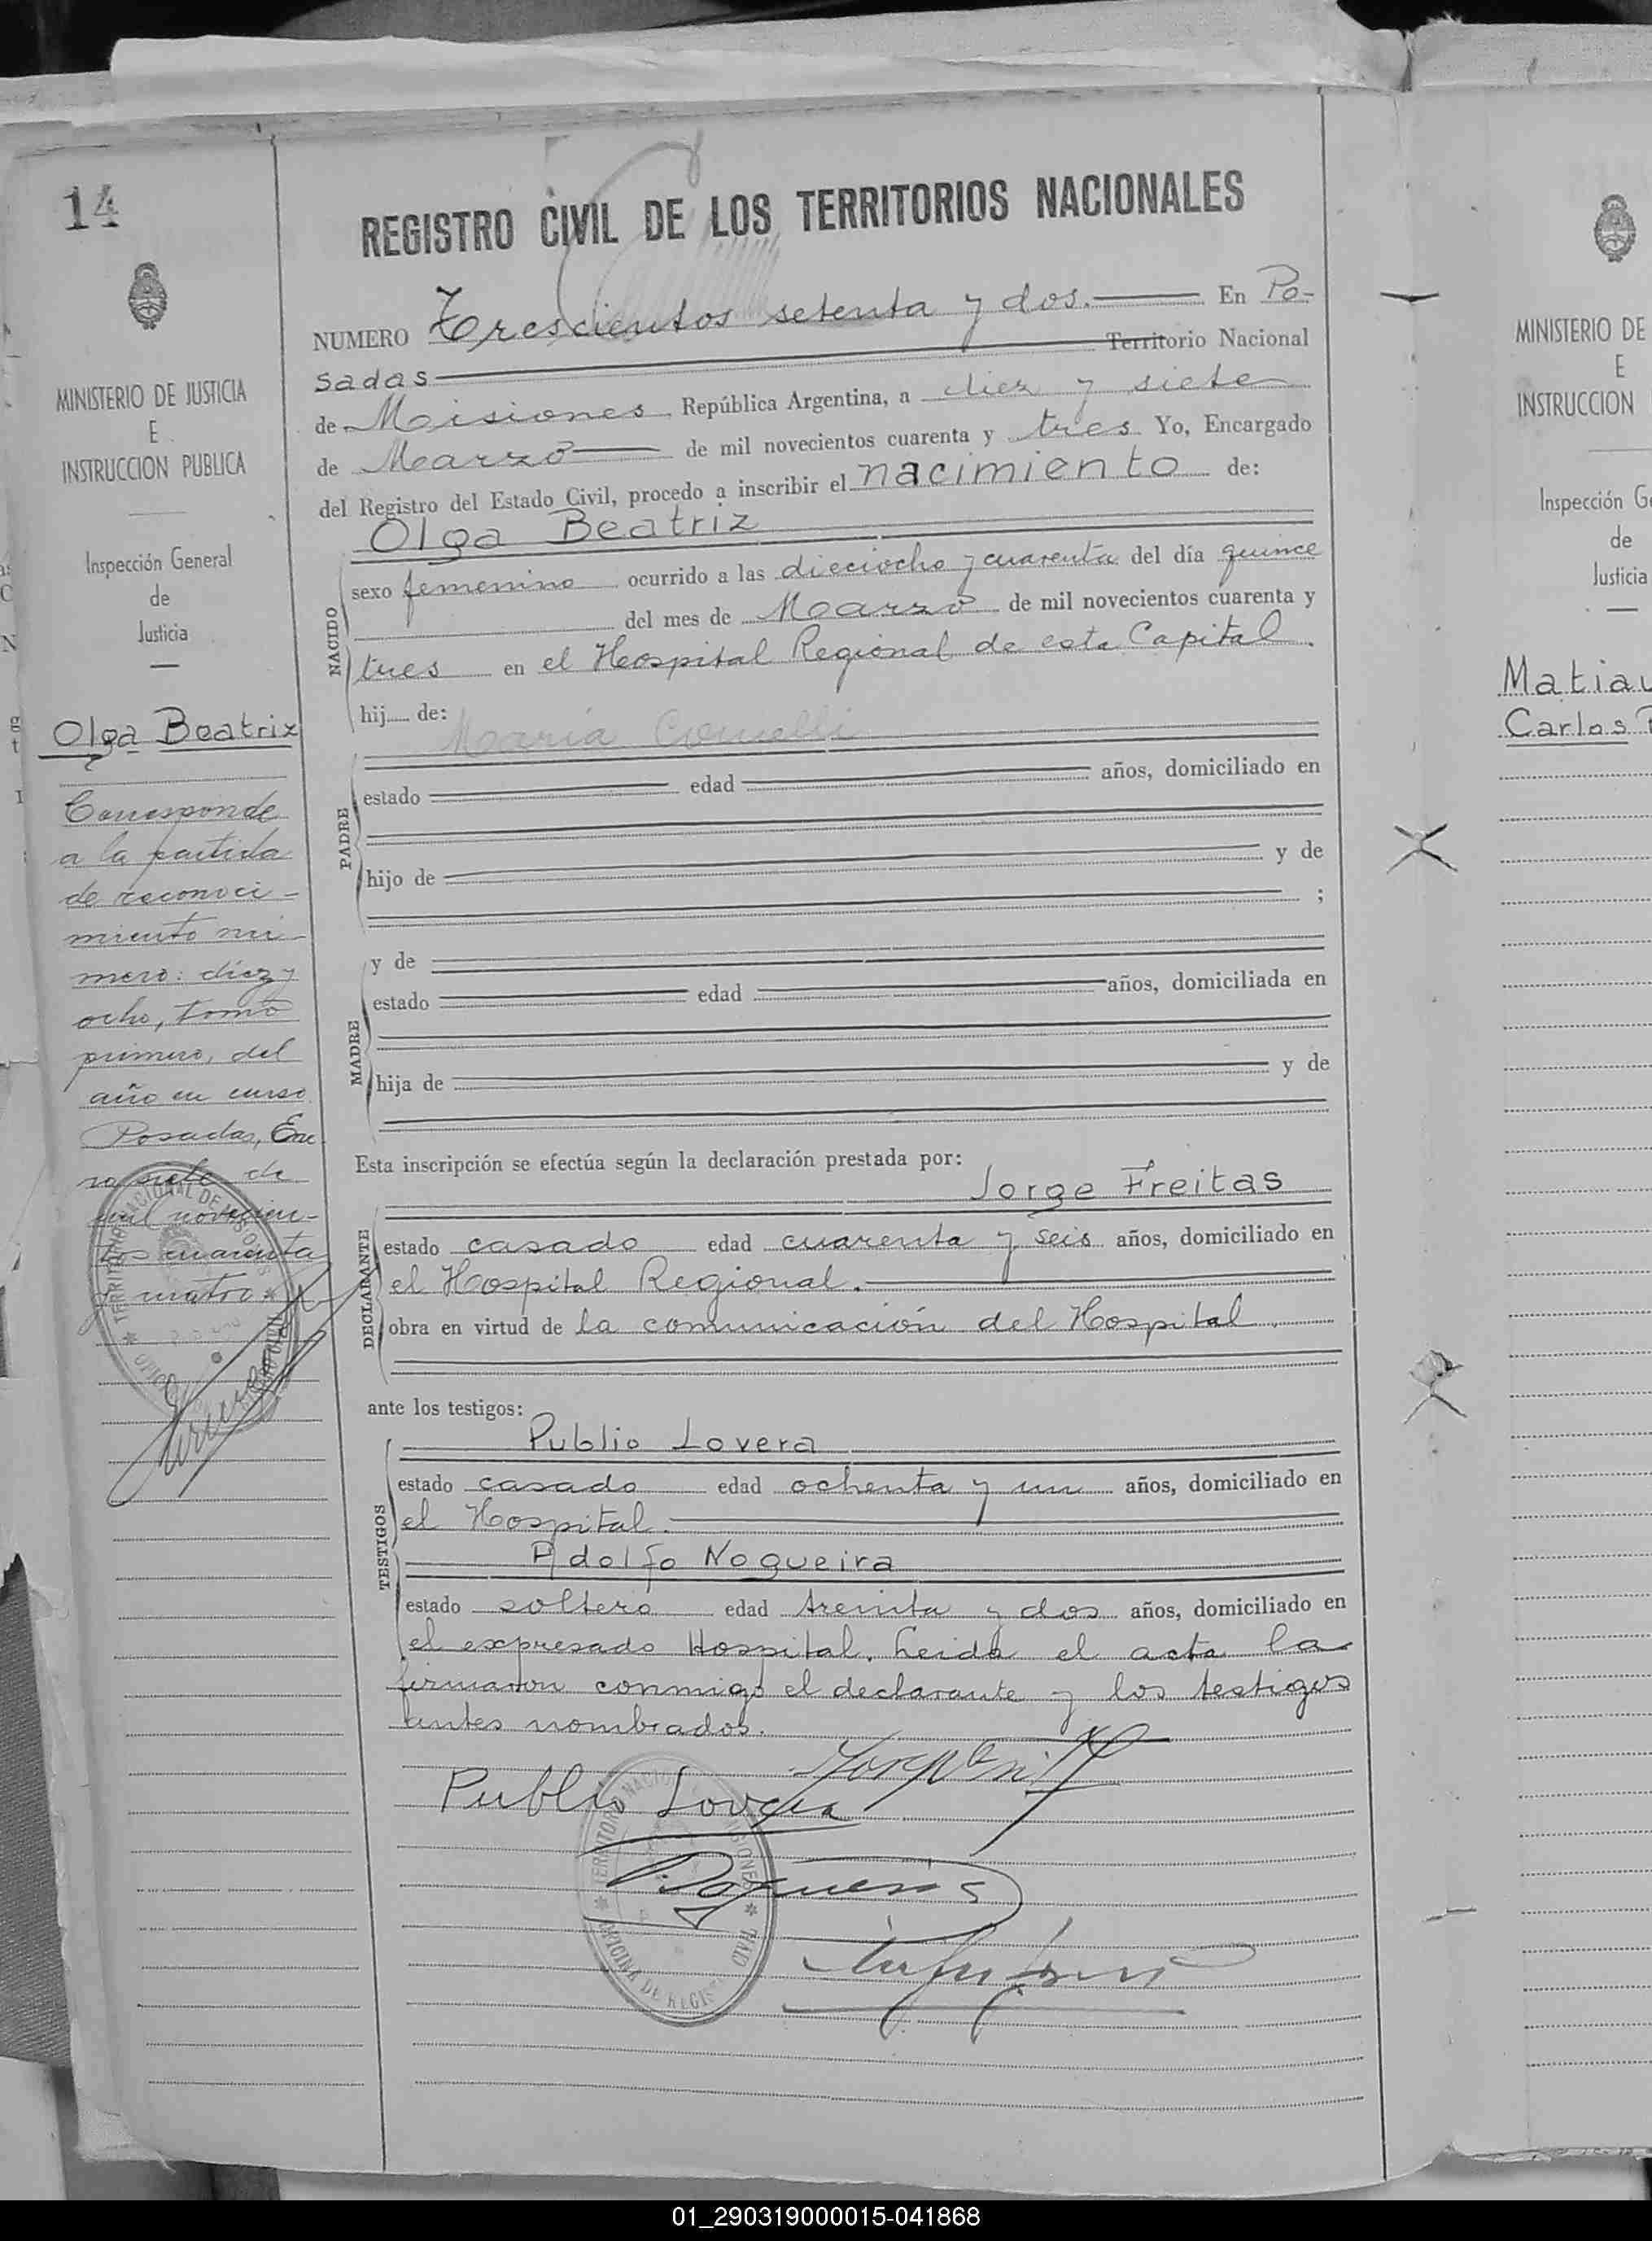 14
MINISTERIO DE JUSTICIA
E
INSTRUCCION PUBLICA
Inspección General
de
Justicia
Olga Beatriz
Corresponde
a la partida
de reconoci-
miento nú-
mero: diez y
ocho, tomo
primero, del
año en curso
Posadas, Ene
ro siete de
mil novecien-
tos cuarenta
y cuatro
REGISTRO CIVIL DE LOS TERRITORIOS NACIONALES
NUMERO Trescientos setenta y dos. En Po-
sadas Territorio Nacional
de Misiones República Argentina, a diez y siete
de Marzo de mil novecientos cuarenta y tres Yo, Encargado
del Registro del Estado Civil, procedo a inscribir el nacimiento de:
Olga Beatriz
NACIDO
sexo femenino ocurrido a las dieciocho y cuarenta del día quince
del mes de Marzo de mil novecientos cuarenta y
tres en el Hospital Regional de esta Capital.
hij de:
María
PADRE
estado edad años, domiciliado en
hijo de y de
;
MADRE
y de
estado edad años, domiciliada en
hija de y de
Esta inscripción se efectúa según la declaración prestada por:
Jorge Freitas
DECLARANTE
estado casado edad cuarenta y seis años, domiciliado en
el Hospital Regional.
obra en virtud de la comunicación del Hospital.
ante los testigos:
Publio Lovera
TESTIGOS
estado casado edad ochenta y un años, domiciliado en
el Hospital.
Adolfo Nogueira
estado soltero edad treinta y dos años, domiciliado en
el expresado Hospital. Leida el acta la
firmaron conmigo el declarante y los testigos
antes nombrados.
Publio Lovera
TERRITORIO NACIONAL DE MISIONES
OFICINA DE REGIS CIVIL
MINISTERIO DE
E
INSTRUCCION
Inspección Ge
de
Justicia
Carlos
01_290319000015-041868